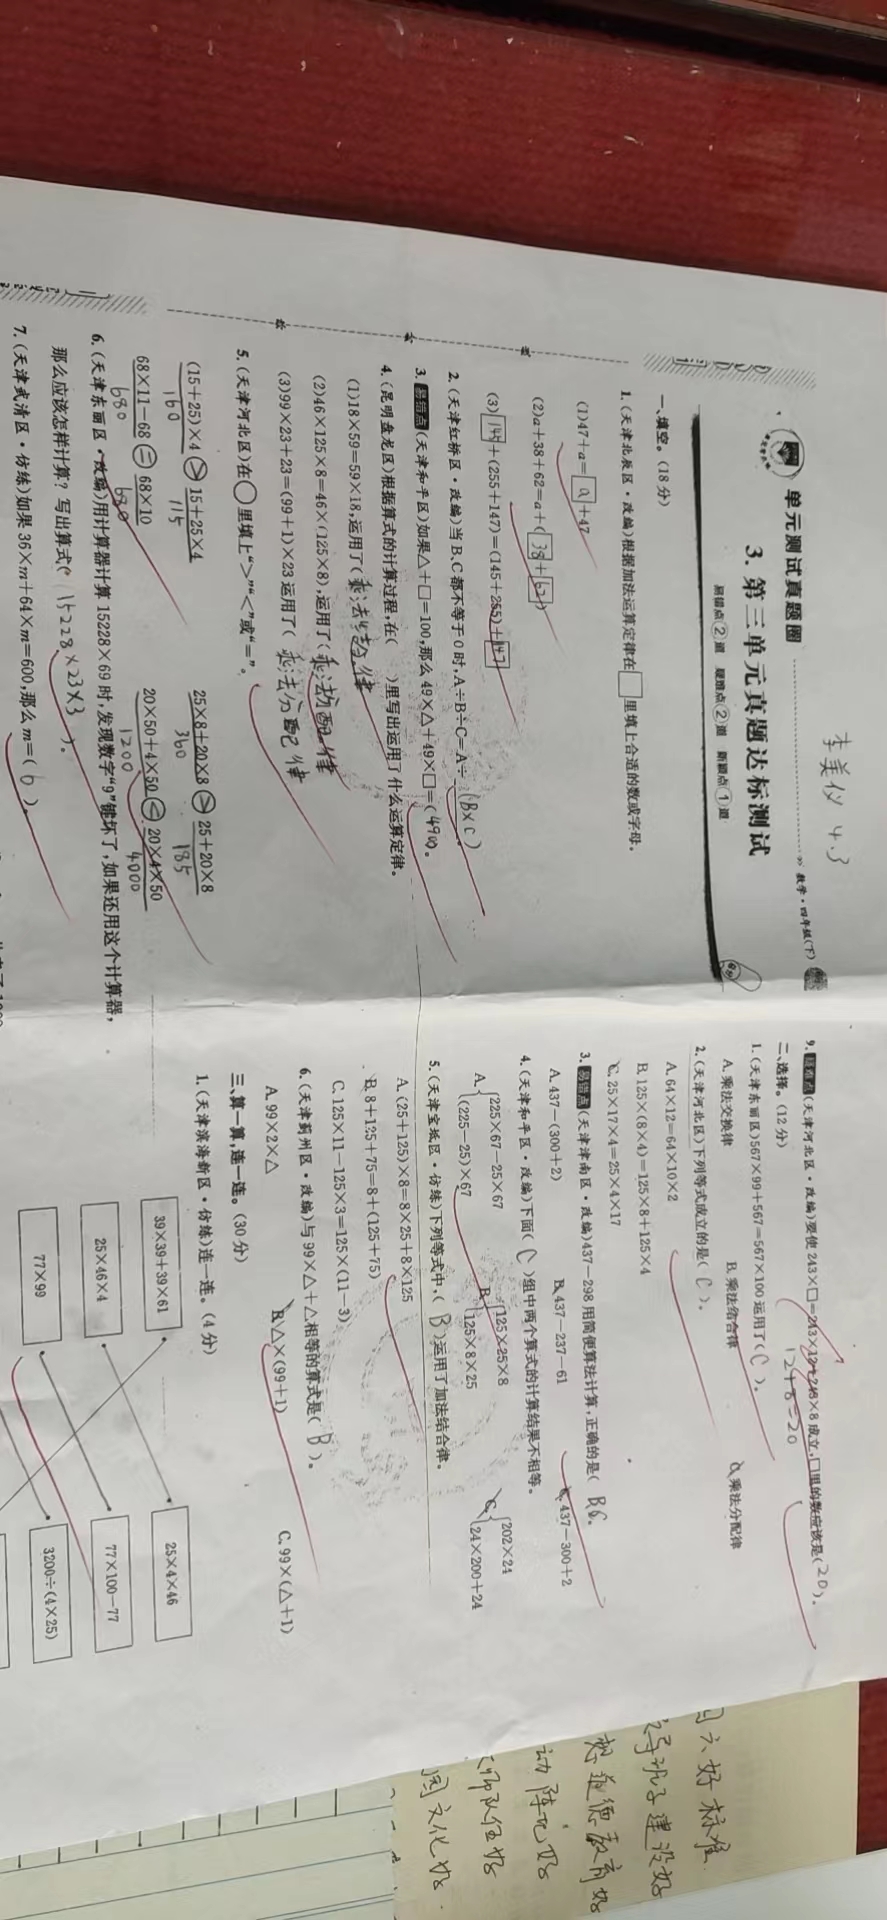 李美仪 4.3
单元测试真题圈 数学·四年级(下)
3. 第三单元真题达标测试
易错点②道 疑难点②道 新颖点①道
一、填空。(18分)
1. (天津北辰区·改编)根据加法运算定律在□里填上合适的数或字母。
(1)47+a=a+47
(2)a+38+62=a+(38+62)
(3)145+(255+147)=(145+255)+147
2. (天津红桥区·改编)当B、C都不等于0时,A÷B÷C=A÷(B×C)
3. 易错点(天津和平区)如果△+□=100,那么49×△+49×□=(4900。
4. (昆明盘龙区)根据算式的计算过程,在( )里写出运用了什么运算定律。
(1)18×59=59×18,运用了(乘法
(2)46×125×8=46×(125×8),运用了(乘法
(3)99×23+23=(99+1)×23运用了(乘法分配律
5. (天津河北区)在○里填上“>”“<”或“=”。
(15+25)×4>15+25×4 25×8+20×8>25+20×8
160 115 360 185
68×11-68=68×10 20×50+4×50<20×4×50
680 680 1200 4000
6. (天津东丽区·改编)用计算器计算15228×69时,发现数字“9”键坏了,如果还用这个计算器,
那么应该怎样计算?写出算式( 15228×23×3 )。
7. (天津武清区·仿练)如果36×m+64×m=600,那么m=(6)。
9. 疑难点(天津河北区·改编)要使243×□=243×12+243×8成立,□里的数应该是(20)。
12+8=20
二、选择。(12分)
1. (天津东丽区)567×99+567=567×100运用了(C)。
A. 乘法交换律 B. 乘法结合律 C. 乘法分配律
2. (天津河北区)下列等式成立的是(C)。
A. 64×12=64×10×2
B. 125×(8×4)=125×8+125×4
C. 25×17×4=25×4×17
3. 易错点(天津津南区·改编)437-298用简便算法计算,正确的是(
A. 437-(300+2) B. 437-237-61 C. 437-300+2
4. (天津和平区·改编)下面(C)组中两个算式的计算结果不相等。
A. {225×67-25×67 B. {125×25×8 C. {202×24
(225-25)×67 125×8×25 24×200+24
5. (天津宝坻区·仿练)下列等式中,(B)运用了加法结合律。
A. (25+125)×8=8×25+8×125
B. 8+125+75=8+(125+75)
C. 125×11-125×3=125×(11-3)
6. (天津蓟州区·改编)与99×△+△相等的算式是(B)。
A. 99×2×△ B. △×(99+1) C. 99×(△+1)
三、算一算,连一连。(30分)
1. (天津滨海新区·仿练)连一连。(4分)
39×39+39×61 25×4×46
25×46×4 77×100-77
77×99 3200÷(4×25)
好标准
班子建设好
德教育好
动阵地好
队伍好
园文化好